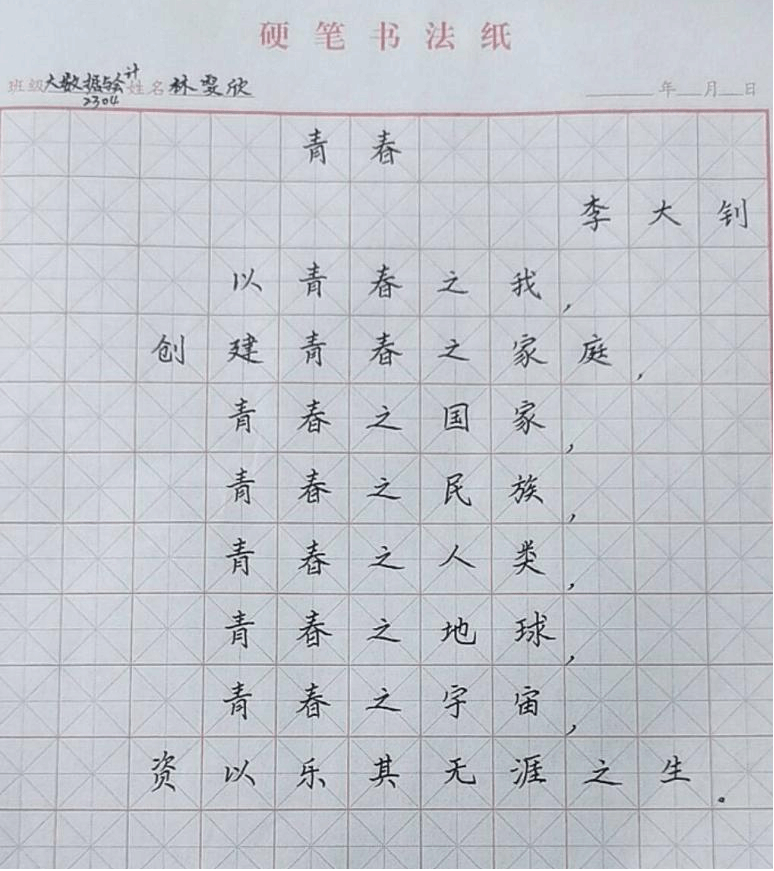 硬笔书法纸
班级 大数据与会计2304 姓名 林雯欣 年 月 日
青春
李大钊
以青春之我，
创建青春之家庭，
青春之国家，
青春之民族，
青春之人类，
青春之地球，
青春之宇宙，
资以乐其无涯之生。